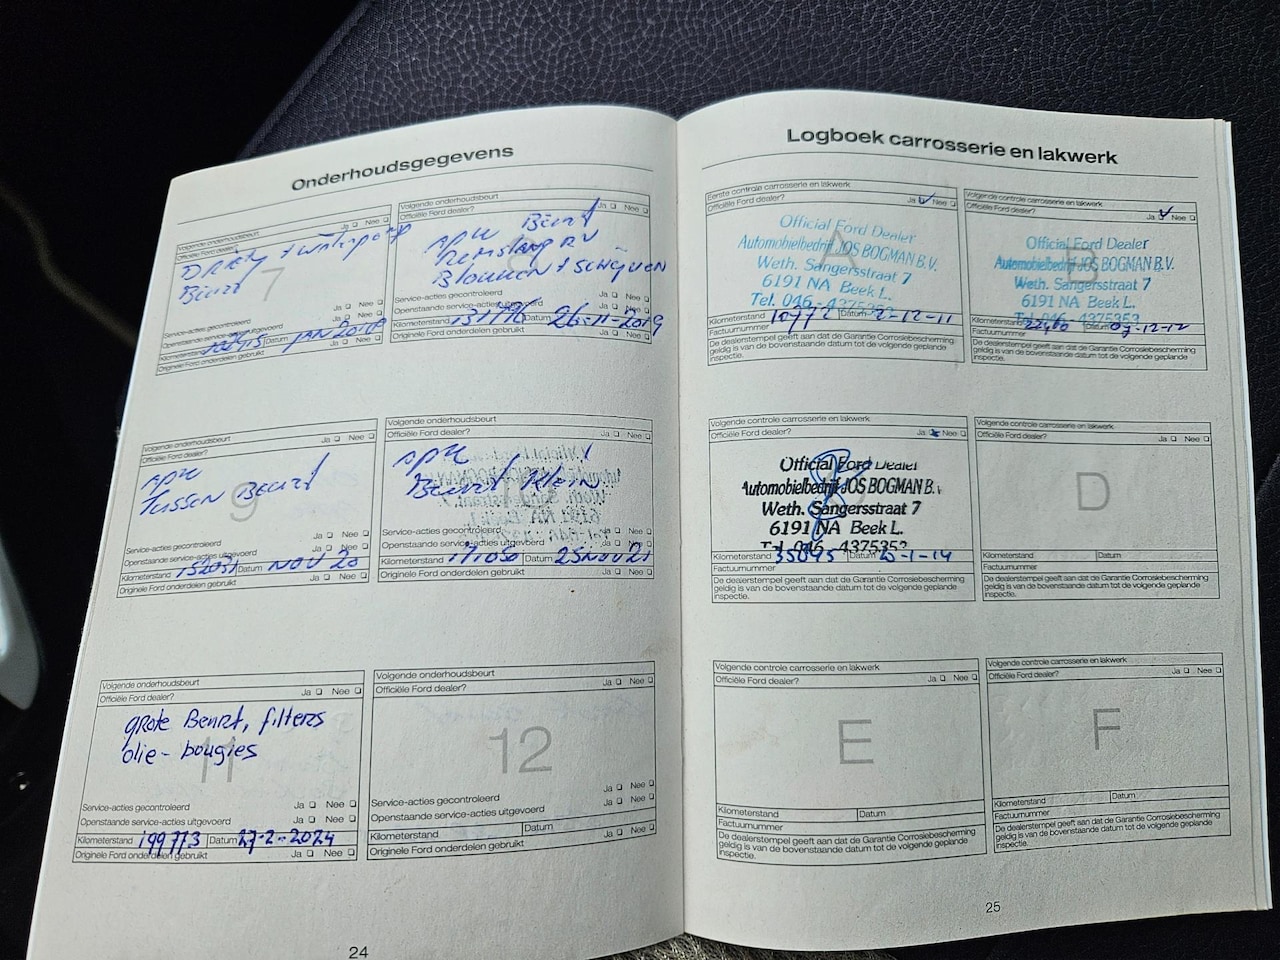 Onderhoudsgegevens
Volgende onderhoudsbeurt
Officiële Ford dealer? Ja Nee
7
Beurt
Service-acties gecontroleerd Ja Nee
Openstaande service-acties uitgevoerd Ja Nee
Kilometerstand Datum
Originele Ford onderdelen gebruikt Ja Nee
Volgende onderhoudsbeurt
Officiële Ford dealer? Ja Nee
8
apk Beurt
Remslang RV
Blokken + schijven
Service-acties gecontroleerd Ja Nee
Openstaande service-acties uitgevoerd Ja Nee
Kilometerstand Datum 26-11-2019
Originele Ford onderdelen gebruikt Ja Nee
Volgende onderhoudsbeurt
Officiële Ford dealer? Ja Nee
9
apk
Tussen Beurt
Service-acties gecontroleerd Ja Nee
Openstaande service-acties uitgevoerd Ja Nee
Kilometerstand Datum NOV 20
Originele Ford onderdelen gebruikt Ja Nee
Volgende onderhoudsbeurt
Officiële Ford dealer? Ja Nee
apk
Beurt Klein
Service-acties gecontroleerd Ja Nee
Openstaande service-acties uitgevoerd Ja Nee
Kilometerstand 171050 Datum 25 NOV 21
Originele Ford onderdelen gebruikt Ja Nee
Volgende onderhoudsbeurt
Officiële Ford dealer? Ja Nee
11
grote Beurt, filters
olie - bougies
Service-acties gecontroleerd Ja Nee
Openstaande service-acties uitgevoerd Ja Nee
Kilometerstand 199773 Datum 27-2-2024
Originele Ford onderdelen gebruikt Ja Nee
Volgende onderhoudsbeurt
Officiële Ford dealer? Ja Nee
12
Service-acties gecontroleerd Ja Nee
Openstaande service-acties uitgevoerd Ja Nee
Kilometerstand Datum
Originele Ford onderdelen gebruikt Ja Nee
24
Logboek carrosserie en lakwerk
Eerste controle carrosserie en lakwerk
Officiële Ford dealer? Ja Nee
A
Official Ford Dealer
Automobielbedrijf JOS BOGMAN B.V.
Weth. Sangersstraat 7
6191 NA Beek L.
Tel. 046-4375353
Kilometerstand 10772 Datum 2-12-11
Factuurnummer
De dealerstempel geeft aan dat de Garantie Corrosiebescherming
geldig is van de bovenstaande datum tot de volgende geplande
inspectie.
Volgende controle carrosserie en lakwerk
Officiële Ford dealer? Ja Nee
B
Official Ford Dealer
Automobielbedrijf JOS BOGMAN B.V.
Weth. Sangersstraat 7
6191 NA Beek L.
Tel. 046-4375353
Kilometerstand Datum 07-12-12
Factuurnummer
De dealerstempel geeft aan dat de Garantie Corrosiebescherming
geldig is van de bovenstaande datum tot de volgende geplande
inspectie.
Volgende controle carrosserie en lakwerk
Officiële Ford dealer? Ja Nee
Official Ford Dealer
Automobielbedrijf JOS BOGMAN B.V.
Weth. Sangersstraat 7
6191 NA Beek L.
Tel. 046-4375353
Kilometerstand 35845 Datum
Factuurnummer
De dealerstempel geeft aan dat de Garantie Corrosiebescherming
geldig is van de bovenstaande datum tot de volgende geplande
inspectie.
Volgende controle carrosserie en lakwerk
Officiële Ford dealer? Ja Nee
D
Kilometerstand Datum
Factuurnummer
De dealerstempel geeft aan dat de Garantie Corrosiebescherming
geldig is van de bovenstaande datum tot de volgende geplande
inspectie.
Volgende controle carrosserie en lakwerk
Officiële Ford dealer? Ja Nee
E
Kilometerstand Datum
Factuurnummer
De dealerstempel geeft aan dat de Garantie Corrosiebescherming
geldig is van de bovenstaande datum tot de volgende geplande
inspectie.
Volgende controle carrosserie en lakwerk
Officiële Ford dealer? Ja Nee
F
Kilometerstand Datum
Factuurnummer
De dealerstempel geeft aan dat de Garantie Corrosiebescherming
geldig is van de bovenstaande datum tot de volgende geplande
inspectie.
25